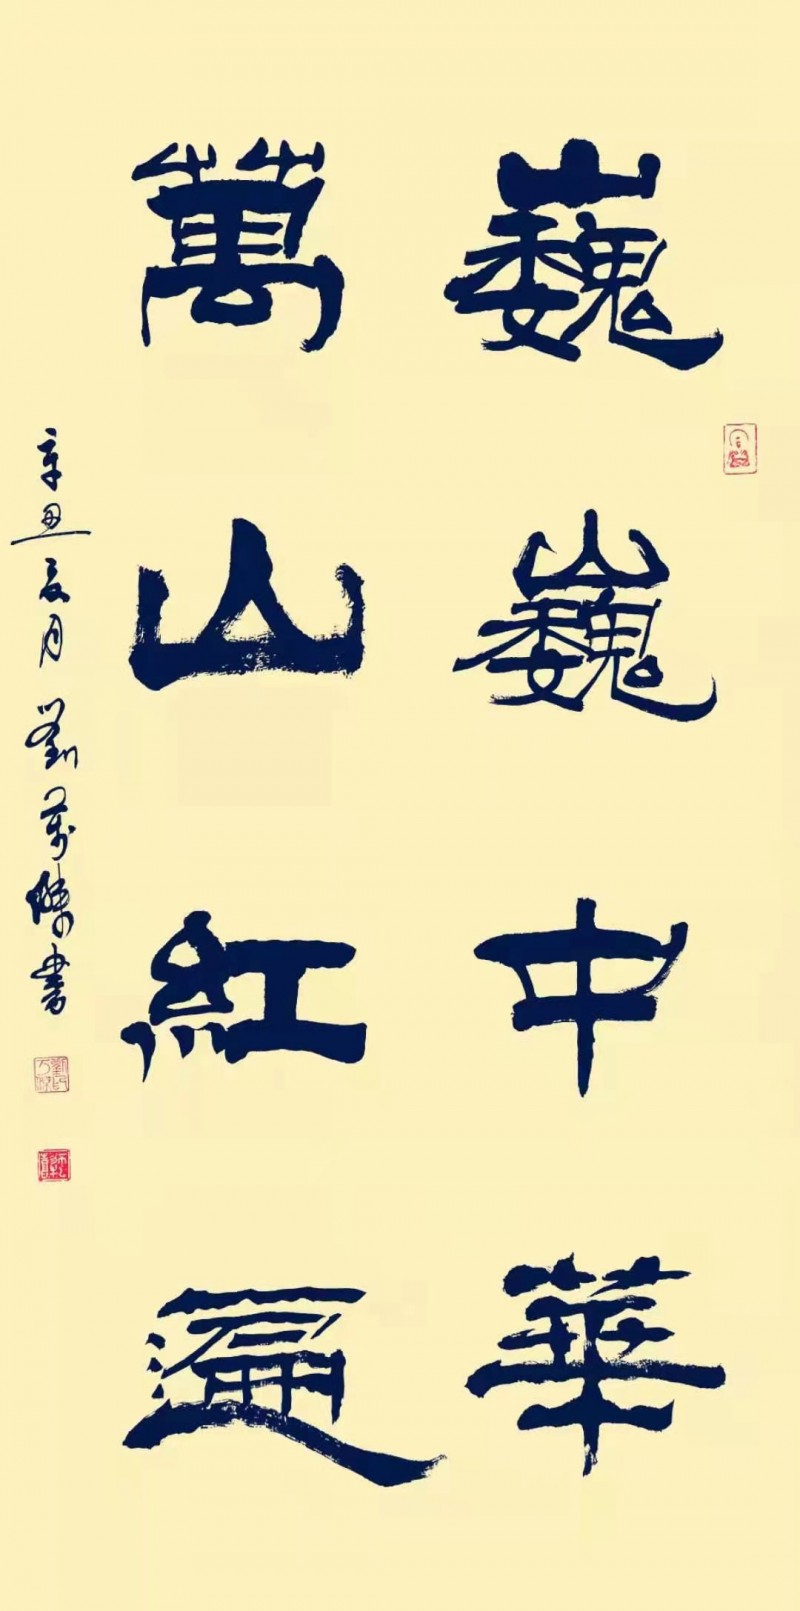 巍巍中華
萬山紅遍
辛丑夏月劉萬傑書